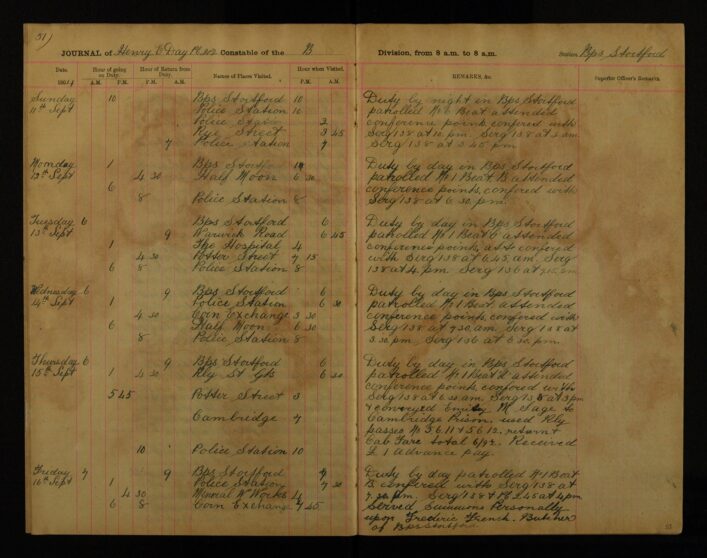 51)
JOURNAL of Henry C Day PC 202 Constable of the B Division, from 8 a.m. to 8 a.m. Station Bps Stortford
Date. Hour of going on Duty. Hour of Return from Duty. Names of Places Visited. Hour when Visited. REMARKS, &c. Superior Officer's Remarks.
A.M. P.M. P.M. A.M. P.M. A.M.
Sunday 10 Bps Stortford 10
Sept Police Station 10
Police Stn 2
Rye Street 3 45
7 Police Station 7
Duty by night in Bps Stortford
patrolled No Beat attended
conference points confered with
Serg 138 at 10 pm. Serg 138 at 2 am
Serg 138 at 3.45 pm
Monday 1 Bps Stortford
Sept 4 30 Half Moon 6 30
6
8 Police Station 8
Duty by day in Bps Stortford
patrolled No 1 Beat B attended
conference points, confered with
Serg 138 at 6.30 pm.
Tuesday 6 Bps Stortford 6
13th Sept 9 Warwick Road 6 45
1 The Hospital 4
4 30 Potter Street 7 15
6 8 Police Station 8
Duty by day in Bps Stortford
patrolled No 1 Beat attended
conference points, confered
with Serg 138 at 6.45 am. Serg
138 at 4 pm. Serg 136 at 7.15 pm
Wednesday 6 9 Bps Stortford 6
14th Sept 1 Police Station 6 30
4 30 Corn Exchange 3 30
6 Half Moon 6 30
8 Police Station 8
Duty by day in Bps Stortford
patrolled No 1 Beat, attended
conference points, confered with
Serg 138 at am, Serg 138 at
3.30 pm, Serg 136 at 6.30 pm.
Thursday 6 9 Bps Stortford 6
15th Sept 1 4 30 Rly St 6 30
5 45 Potter Street 3
Cambridge 7
10 Police Station 10
Duty by day in Bps Stortford
patrolled No 1 Beat attended
conference points confered with
Serg 138 at 6.30 am. Serg 138 at 3 pm
& conveyed Emily M. Sage to
Cambridge Prison, used Rly
passes No 3611 & 3612. return &
Cab Fare total Received
£ 1 advance pay.
Friday 7 9 Bps Stortford 7
16th Sept 1 Police Station 7 30
4 30 Mineral W Works 4
6 8 Corn Exchange 7 45
Duty by day patrolled No 1 Beat
B confered with Serg 138 at
7.30 Serg 138 at 4 pm
Served Summons Personally
upon Frederic French. Butcher
of Bps Stortford.